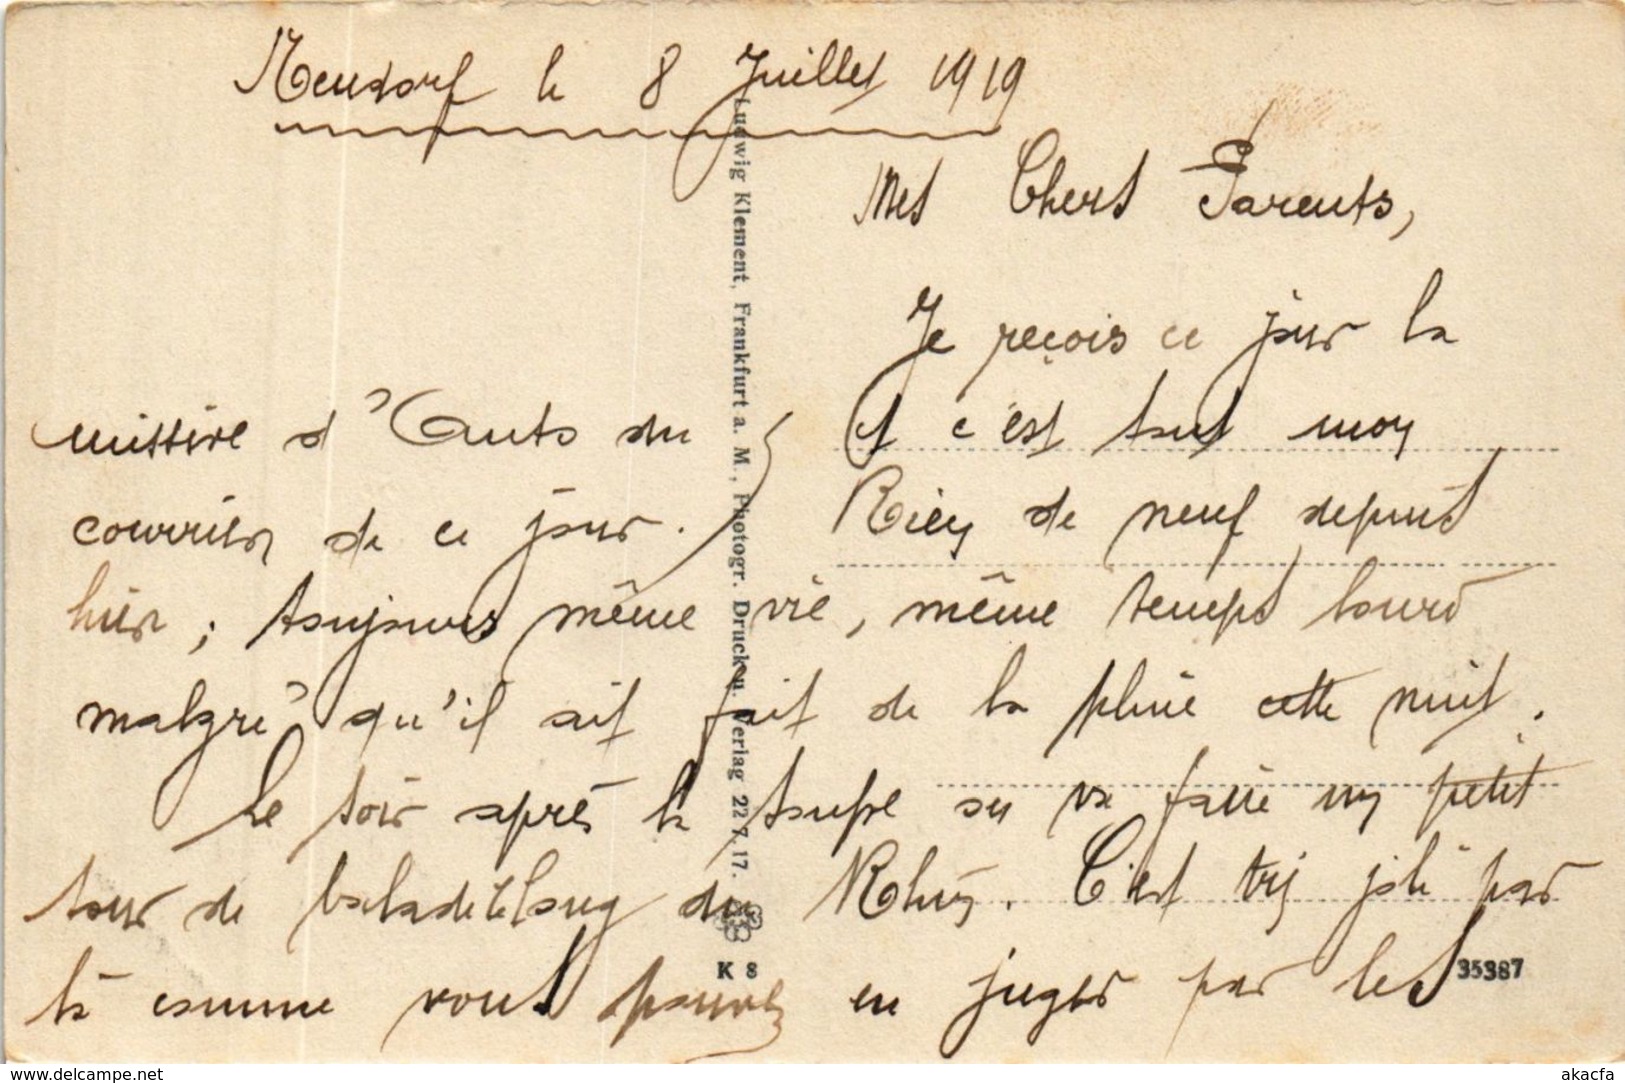 Neudorf le 8 Juillet 1919
Mes Chers Parents,
Je reçois ce jour la
missive d' du
et c'est tout mon
courrier de ce jour.
Rien de neuf depuis
hier ; toujours même vie, même temps lourd
malgré qu'il ait fait de la pluie cette nuit.
Le soir après la soupe on va faire un petit
tour de balade le long du Rhin. C'est très joli par
là comme vous pouvez en juger par les
Ludwig Klement, Frankfurt a. M., Photogr. Druck u. Verlag 22. 7. 17.
K 8
35387
www.delcampe.net
akacfa